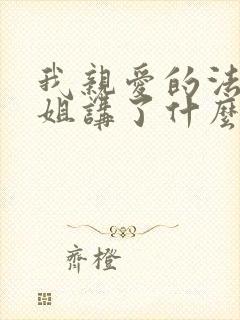 我親愛的法
姐講了什麼
齊橙